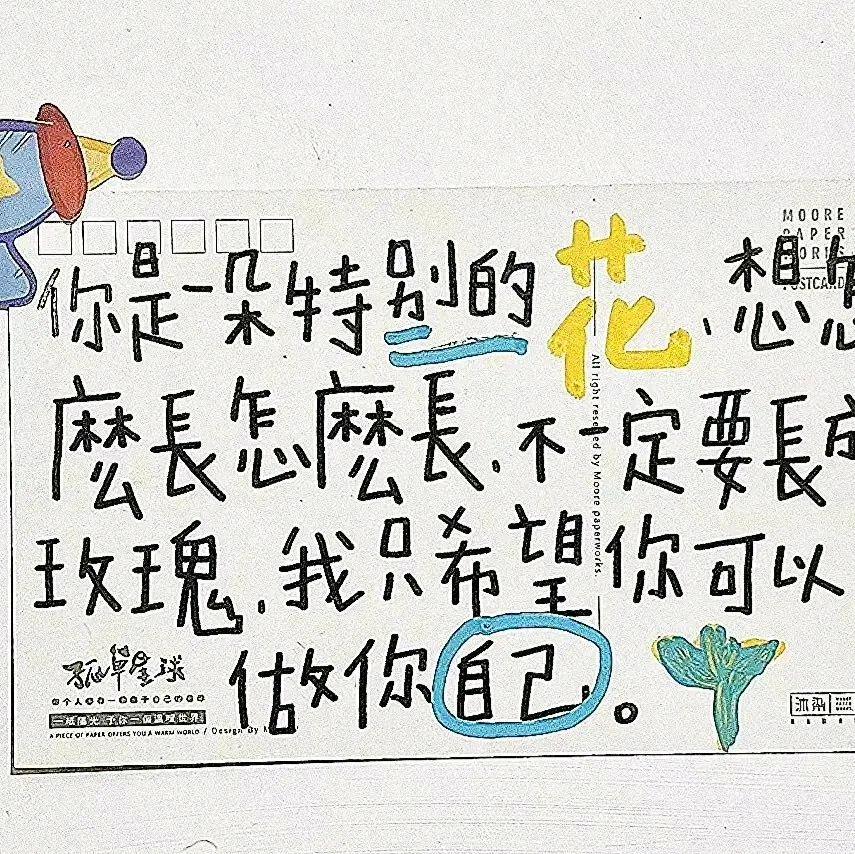 MOORE
PAPER
WORKS
POSTCARD
你是一朵特別的花,想怎
麼長怎麼長,不一定要長成
玫瑰,我只希望你可以
做你自己。
All right reserved by Moore paperworks.
孤單星球
每個人都有一個屬于自己的星球
一紙陽光 予你一個溫暖世界
A PIECE OF PAPER OFFERS YOU A WARM WORLD / Design By M